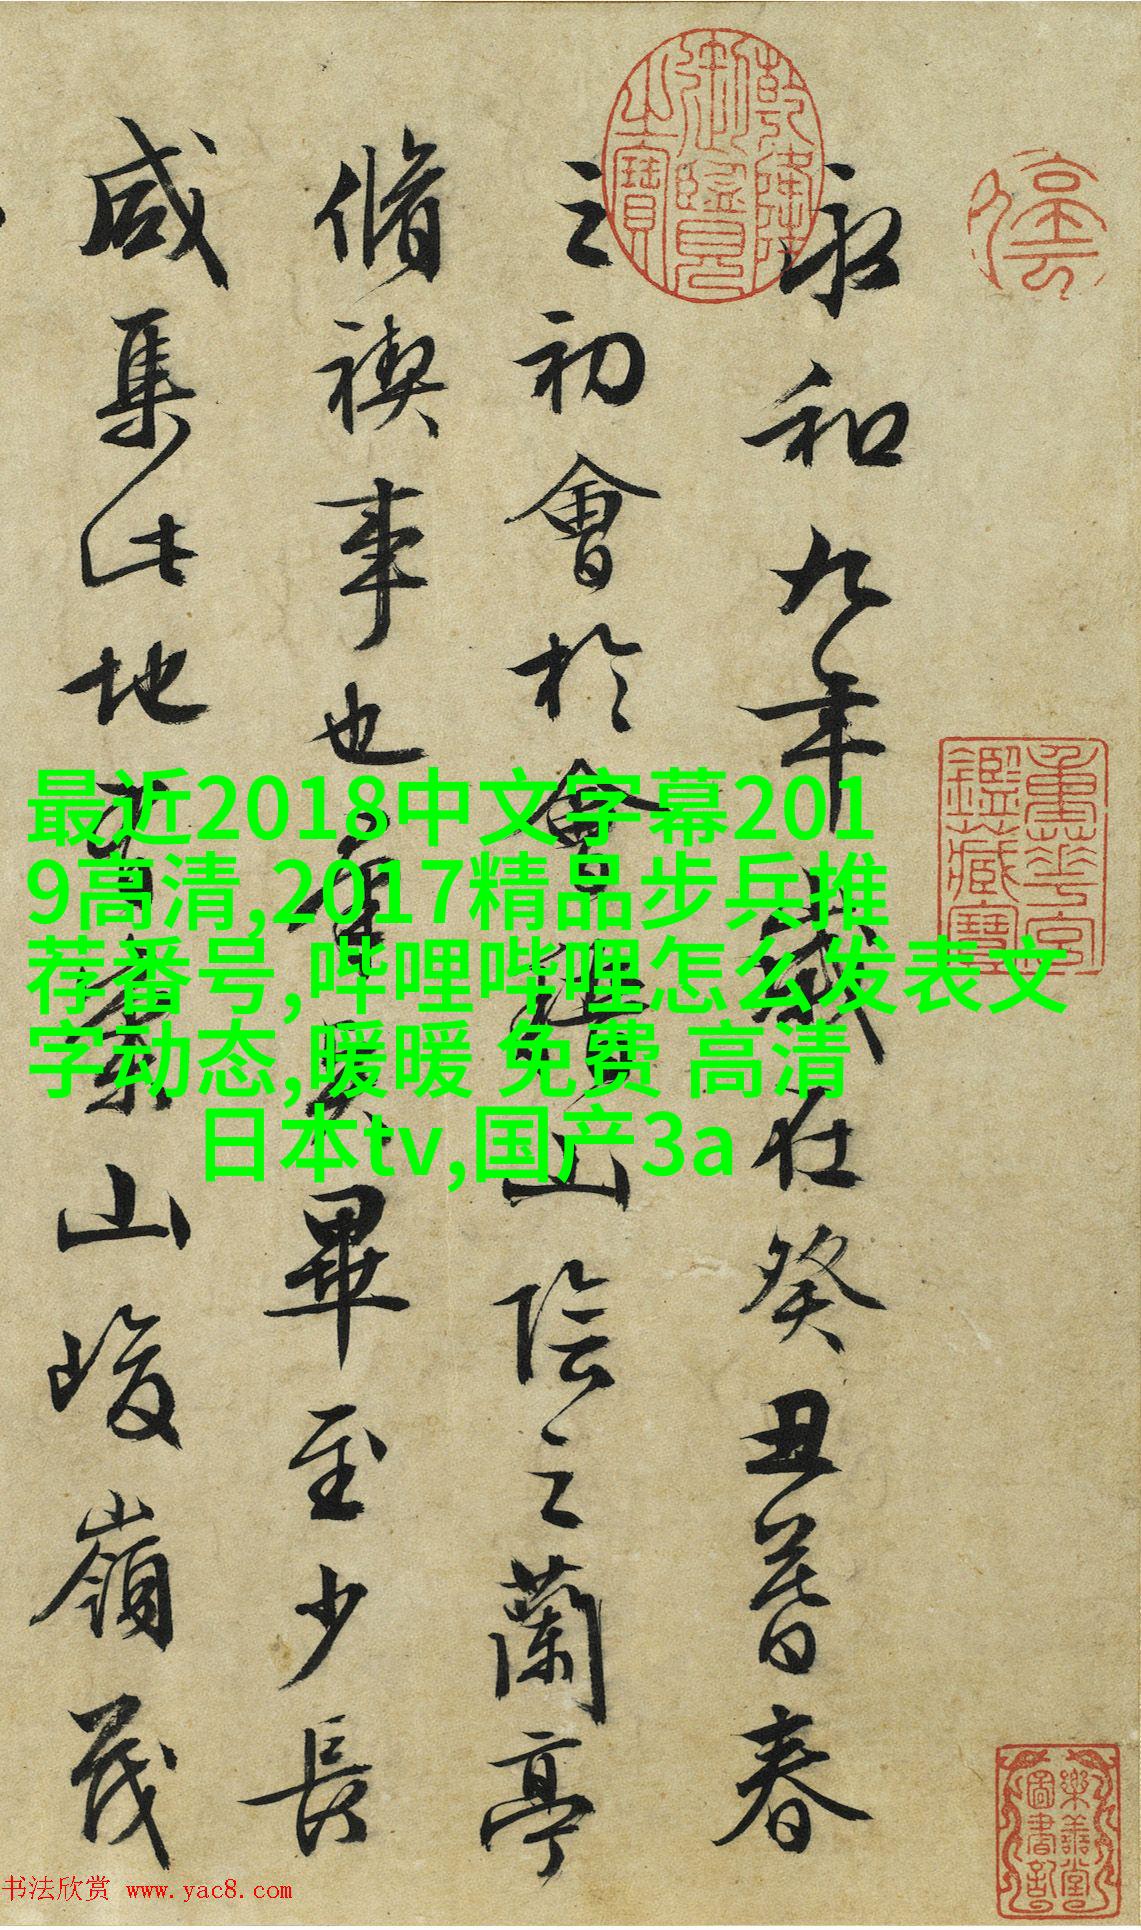 停雲
乾隆御覽之寶
重華宮鑑藏寶
樂善堂圖書記
永和九年歲在癸丑暮春
之初會於會稽山陰之蘭亭
脩禊事也羣賢畢至少長
咸集此地有崇山峻嶺茂
最近2018中文字幕201
9高清,2017精品步兵推
荐番号,哔哩哔哩怎么发表文
字动态,暖暖 免费 高清
日本tv,国产3a
书法欣赏 www.yac8.com